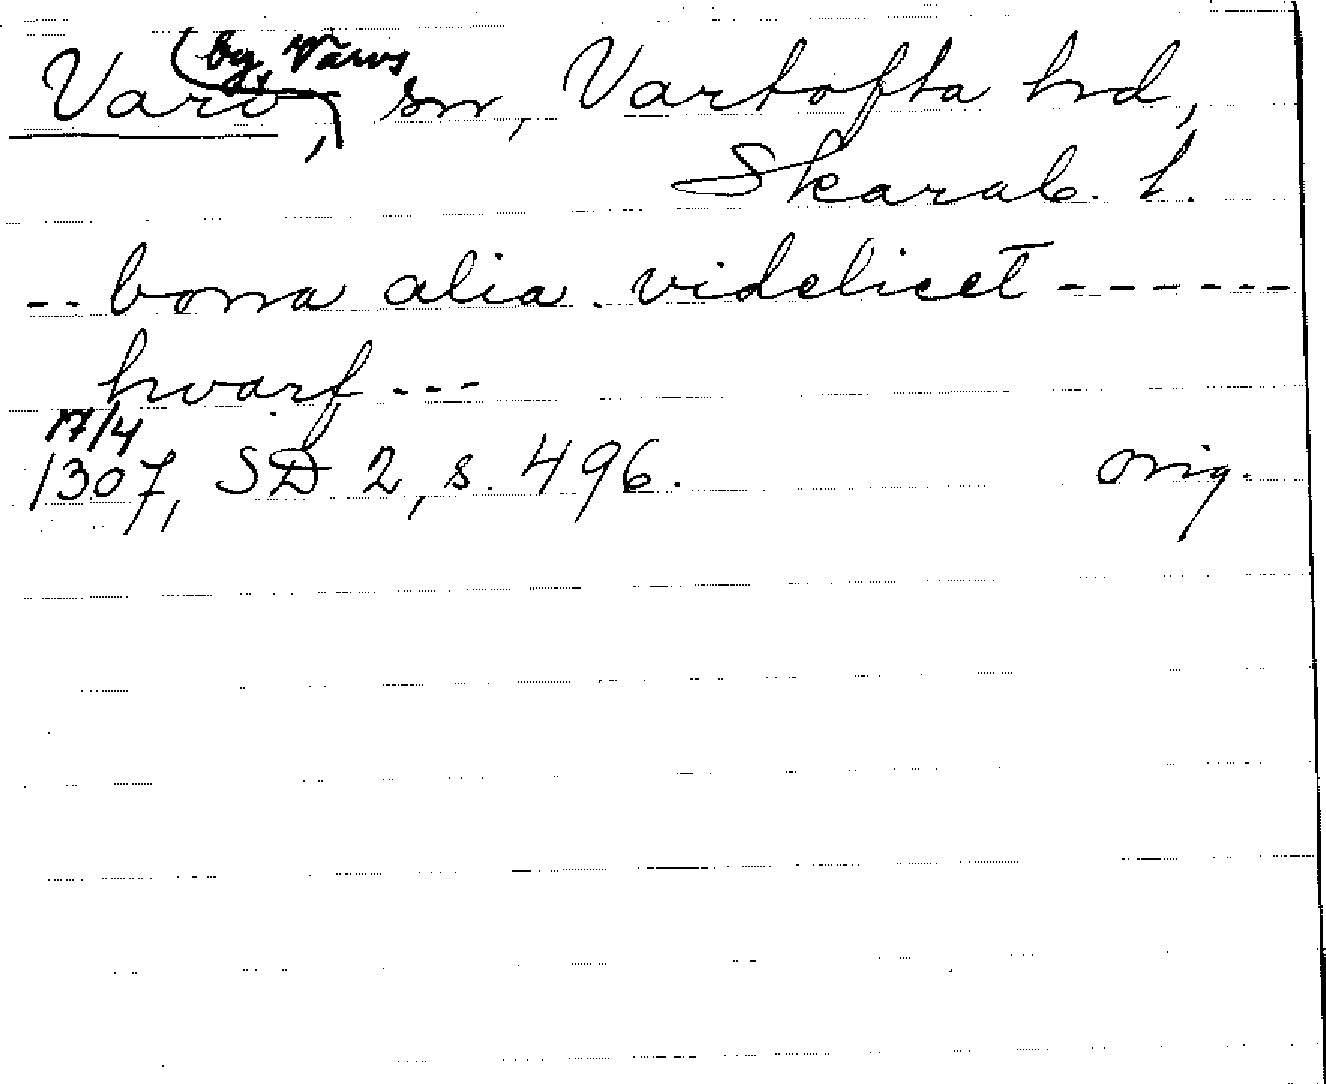 by, Varvs
Varv, sn, Vartofta hrd,
Skarab. l.
-- bona alia videlicet ------
hvarf ---
17/4
1307, SD 2, s. 496. orig.